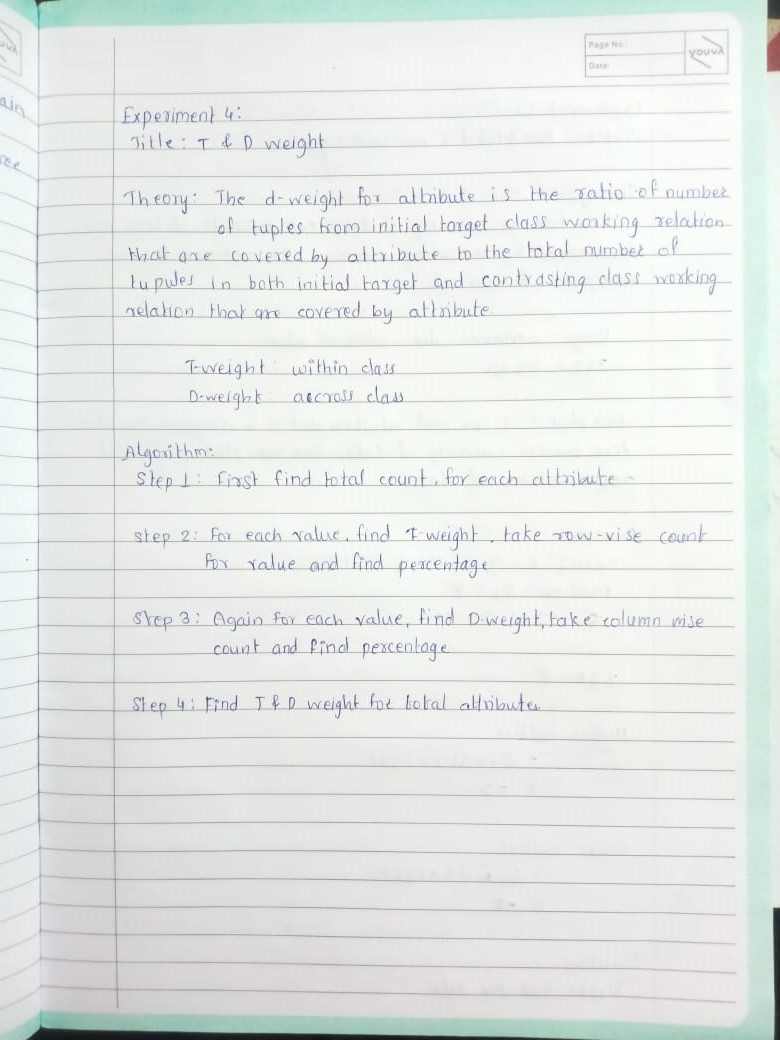 Page No.:
Date:
YOUVA
ain
ree
Experiment 4:
Title: T & D weight
Theory: The d-weight for attribute is the ratio of number
of tuples from initial target class working relation
that are covered by attribute to the total number of
tupules in both initial target and contrasting class working
relation that are covered by attribute
T-weight: within class
D-weight: accross class
Algorithm:
Step 1: First find total count, for each attribute
Step 2: For each value, find T-weight, take row-vise count
for value and find percentage
Step 3: Again for each value, find D-weight, take column wise
count and find percentage
Step 4: Find T & D weight for total attributes